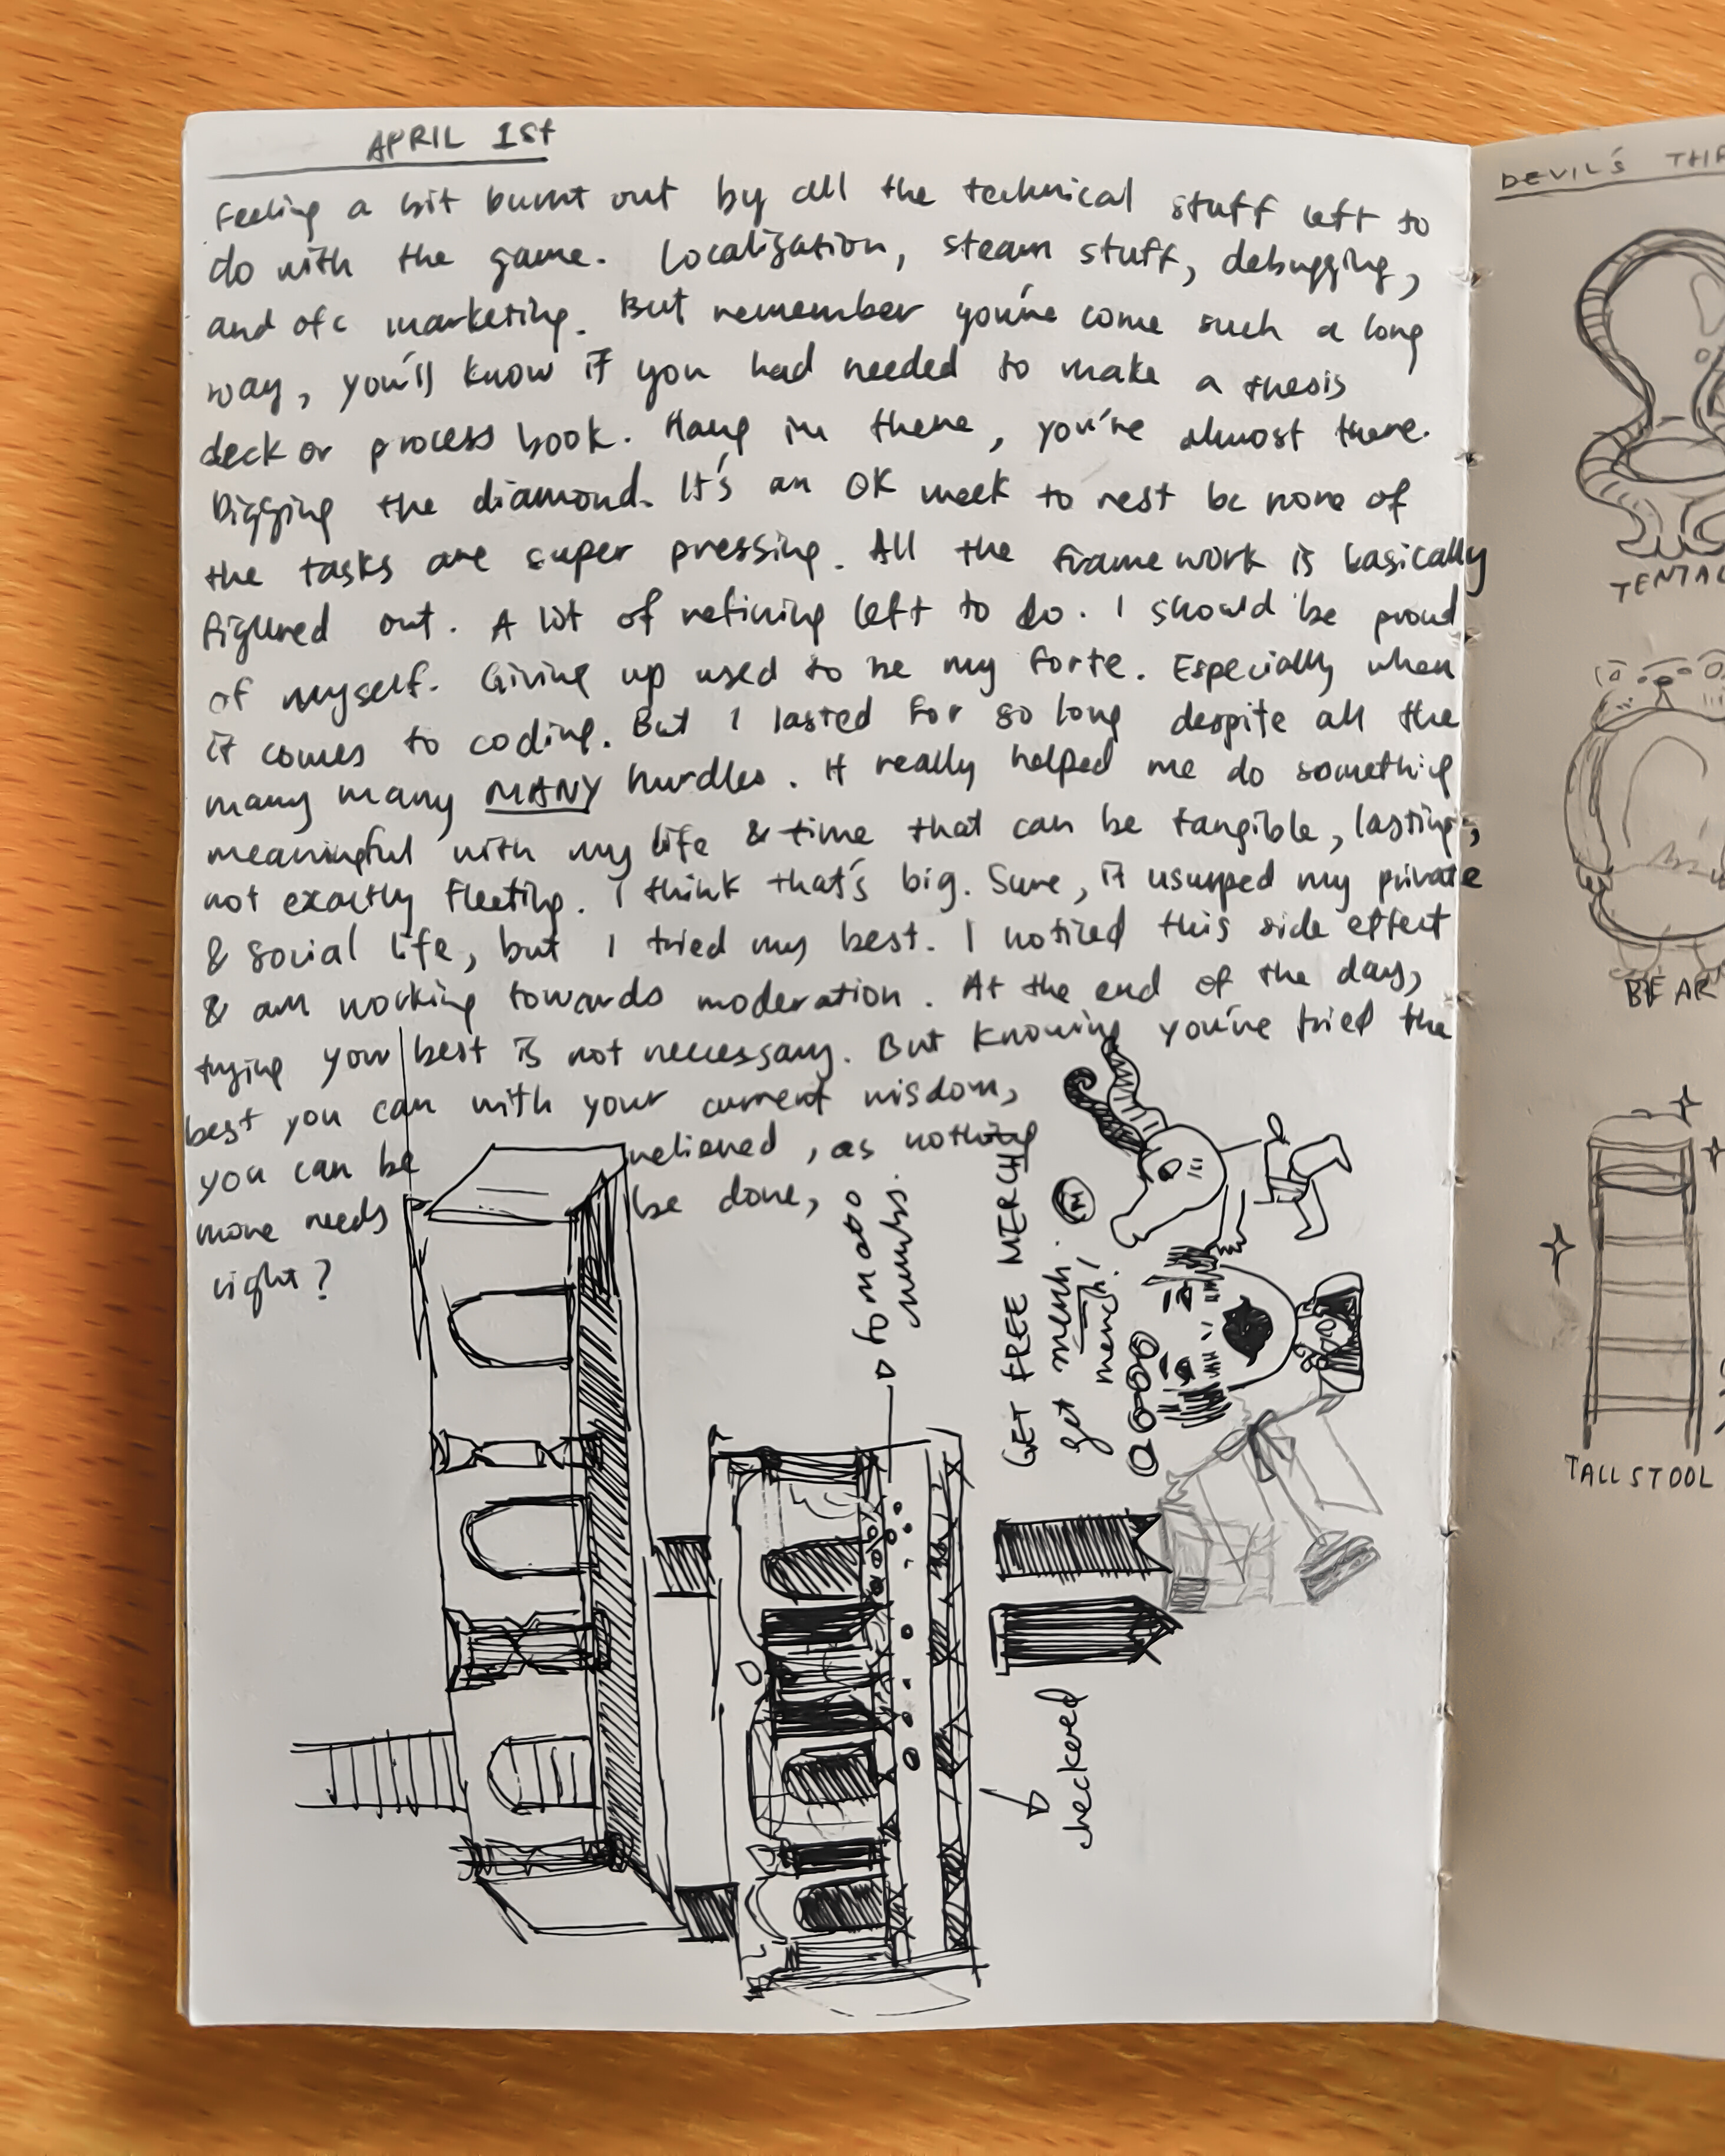 APRIL 1st
Feeling a bit burnt out by all the technical stuff left to
do with the game. Localization, steam stuff, debugging,
and ofc marketing. But remember you've come such a long
way, you'll know if you had needed to make a thesis
deck or process book. Hang in there, you're almost there.
Digging the diamond. It's an OK week to rest bc none of
the tasks are super pressing. All the framework is basically
figured out. A lot of refining left to do. I should be proud
of myself. Giving up used to be my forte. Especially when
it comes to coding. But I lasted for so long despite all the
many many MANY hurdles. It really helped me do something
meaningful with my life & time that can be tangible, lasting,
not exactly fleeting. I think that's big. Sure, it usurped my private
& social life, but I tried my best. I noticed this side effect
& am working towards moderation. At the end of the day,
trying your best is not necessary. But knowing you've tried the
best you can with your current wisdom,
you can be relieved, as nothing
more needs be done,
right?
tomato
GET FREE MERCH
get merch.
merch!
checkered
DEVIL'S
BEAR
TALL STOOL